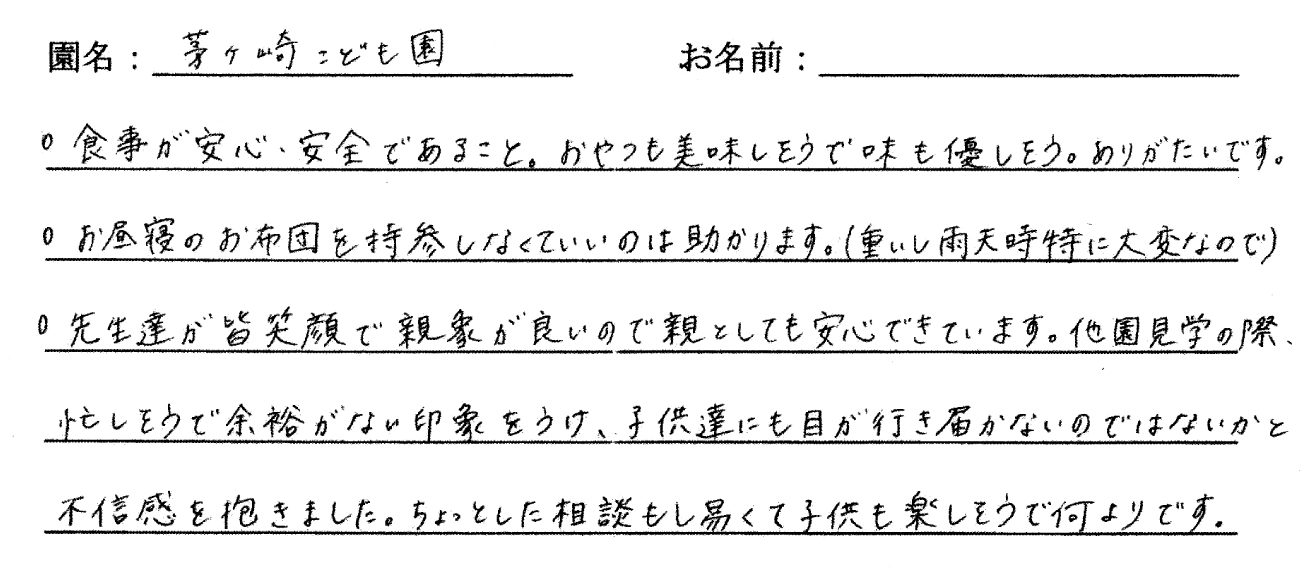 園名：茅ヶ崎こども園　お名前：
○食事が安心・安全であること。おやつも美味しそうで味も優しそう。ありがたいです。
○お昼寝のお布団を持参しなくていいのは助かります。(重いし雨天時特に大変なので)
○先生達が皆笑顔で親象が良いので親としても安心できています。他園見学の際、
忙しそうで余裕がない印象をうけ、子供達にも目が行き届かないのではないかと
不信感を抱きました。ちょっとした相談もし易くて子供も楽しそうで何よりです。